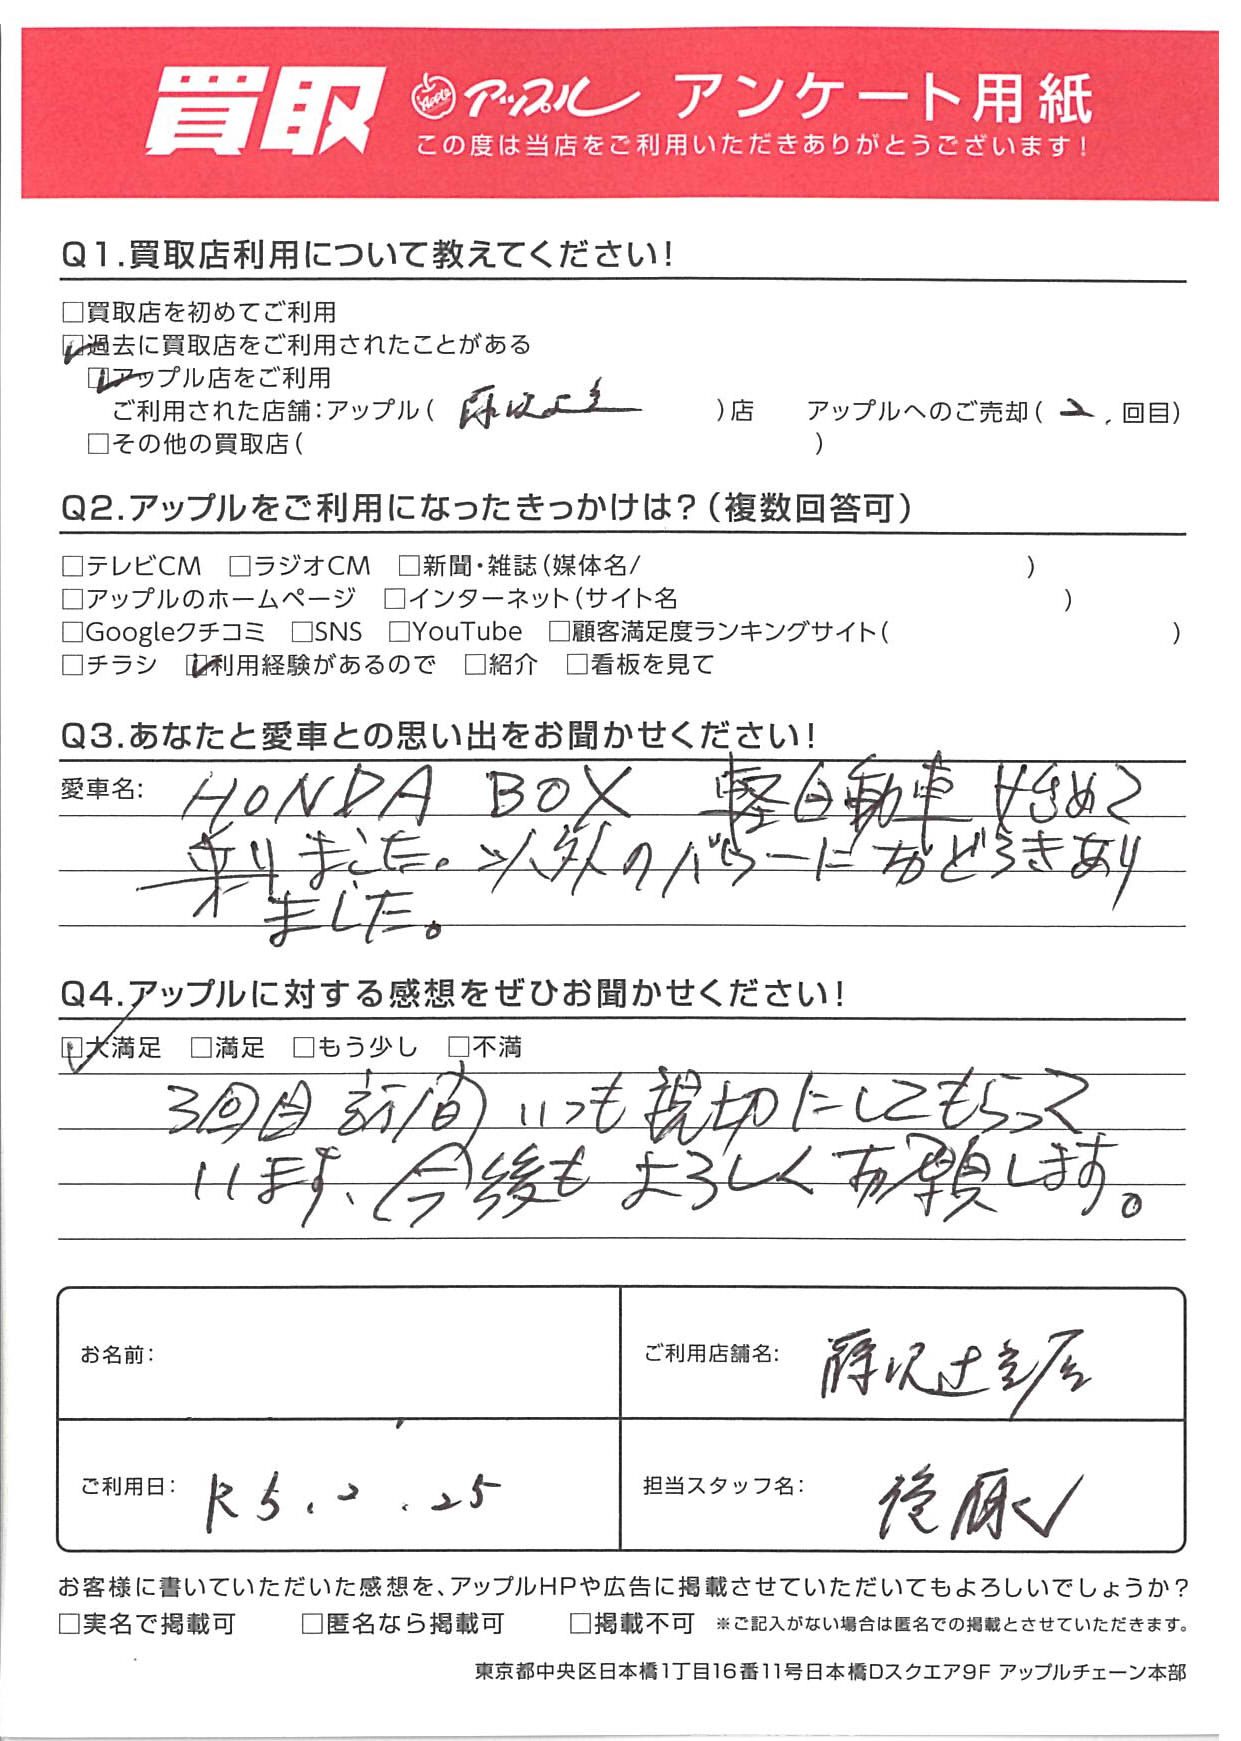 買取 Apple アップル アンケート用紙
この度は当店をご利用いただきありがとうございます!
Q1.買取店利用について教えてください!
□買取店を初めてご利用
☑過去に買取店をご利用されたことがある
☑アップル店をご利用
ご利用された店舗:アップル( )店 アップルへのご売却( 2 回目)
□その他の買取店( )
Q2.アップルをご利用になったきっかけは?(複数回答可)
□テレビCM □ラジオCM □新聞・雑誌(媒体名/ )
□アップルのホームページ □インターネット(サイト名 )
□Googleクチコミ □SNS □YouTube □顧客満足度ランキングサイト( )
□チラシ ☑利用経験があるので □紹介 □看板を見て
Q3.あなたと愛車との思い出をお聞かせください!
愛車名: HONDA BOX 軽自動車 はじめて
乗りました。以外のパワーにおどろきあり
ました。
Q4.アップルに対する感想をぜひお聞かせください!
☑大満足 □満足 □もう少し □不満
3回目 いつも親切にしてもらって
います、今後もよろしくお願します。
お名前:
ご利用店舗名: 藤沢辻堂店
ご利用日: R5.2.25
担当スタッフ名: 後藤
お客様に書いていただいた感想を、アップルHPや広告に掲載させていただいてもよろしいでしょうか?
□実名で掲載可 □匿名なら掲載可 □掲載不可 ※ご記入がない場合は匿名での掲載とさせていただきます。
東京都中央区日本橋1丁目16番11号日本橋Dスクエア9F アップルチェーン本部